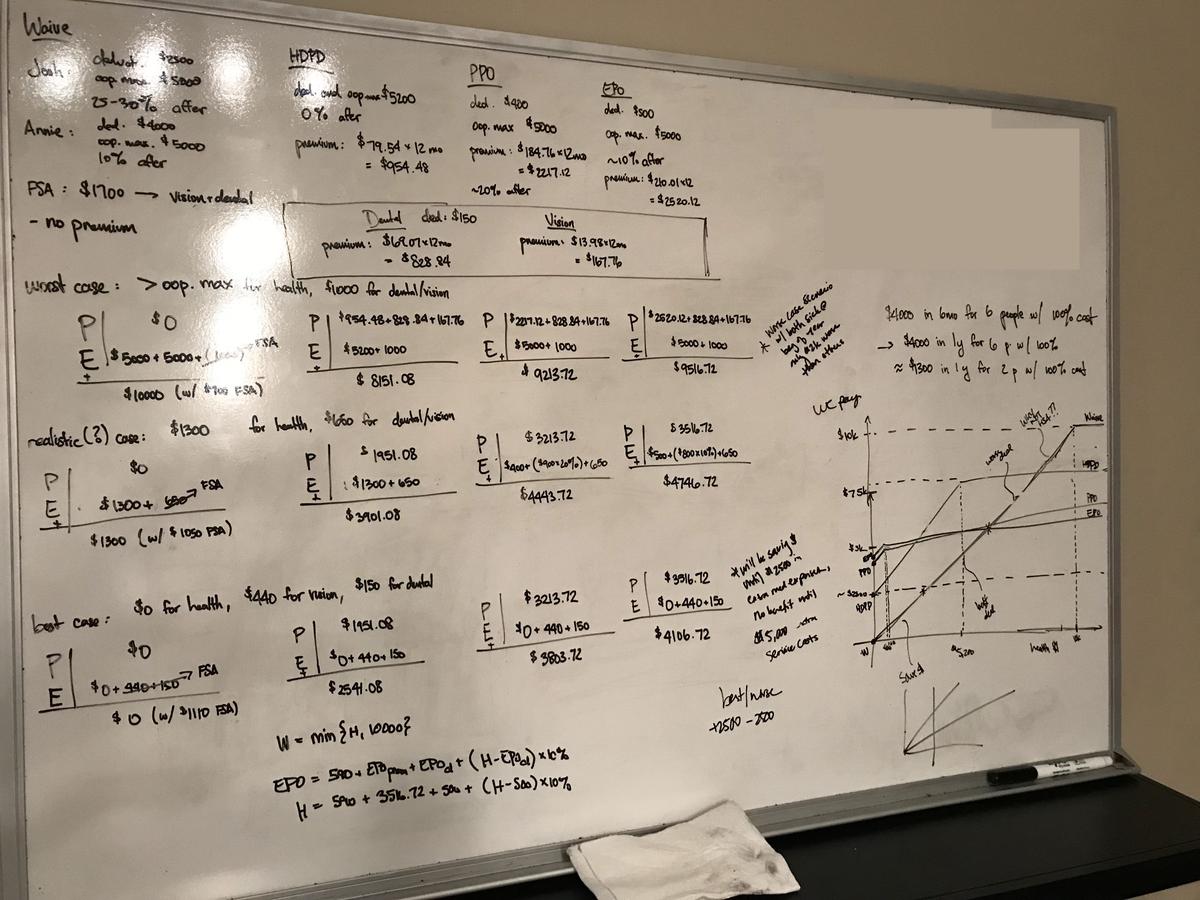 Waive
Josh: deduct. $2500
oop. max $5000
25-30% after
Annie: ded. $4000
oop. max. $5000
10% after
FSA: $1700 → vision+dental
- no premium
HDPD
ded. and oop max $5200
0% after
premium: $79.54 x 12 mo
= $954.48
PPO
ded. $400
oop. max $5000
premium: $184.76 x 12mo
= $2217.12
~20% after
EPO
ded. $500
oop. max. $5000
~10% after
premium: $210.01x12
= $2520.12
Dental ded: $150
premium: $69.07x12mo
= $828.84
Vision
premium: $13.98x12mo
= $167.76
worst case: > oop. max for health, $1000 for dental/vision
P $0
E $5000 + 5000 + (1000) → FSA
+
$10000 (w/ $700 FSA)
P $954.48+828.84+167.76
E $5200 + 1000
+
$8151.08
P $2217.12+828.84+167.76
E $5000 + 1000
+
$9213.72
P $2520.12+828.84+167.76
E $5000 + 1000
+
$9516.72
* worse case scenario
w/ both sick @
beg of year
than others
realistic(?) case: $1300 for health, $650 for dental/vision
P $0
E $1300 + 650 → FSA
+
$1300 (w/ $1050 FSA)
P $1951.08
E $1300 + 650
+
$3901.08
P $3213.72
E $400+($900x20%)+650
+
$4443.72
P $3516.72
E $500+($800x10%)+650
+
$4746.72
best case: $0 for health, $440 for vision, $150 for dental
P $0
E $0 + 440+150 → FSA
$0 (w/ $1110 FSA)
P $1951.08
E $0 + 440+150
+
$2541.08
P $3213.72
E $0 + 440 + 150
+
$3803.72
P $3516.72
E $0+440+150
$4106.72
* will be saving $
until $2500 in
extra med expenses,
no benefit until
$5,000 extra
service costs
W = min{H, 10000}
EPO = 590 + EPO prem + EPOd + (H-EPOd) x 10%
H = 590 + 3516.72 + 500 + (H-500) x 10%
best/worse
+2500 -2500
$4000 in 6mo for 6 people w/ 100% cost
→ $4000 in 1y for 6 p w/ 100%
≈ $1300 in 1y for 2 p w/ 100% cost
we pay
$10k
$7.5k
$3k
EPO
PPO
~ $2500
HDPD
W
$5200
10k
health $
Waive
HDPD
PPO
EPO
worst
Save $